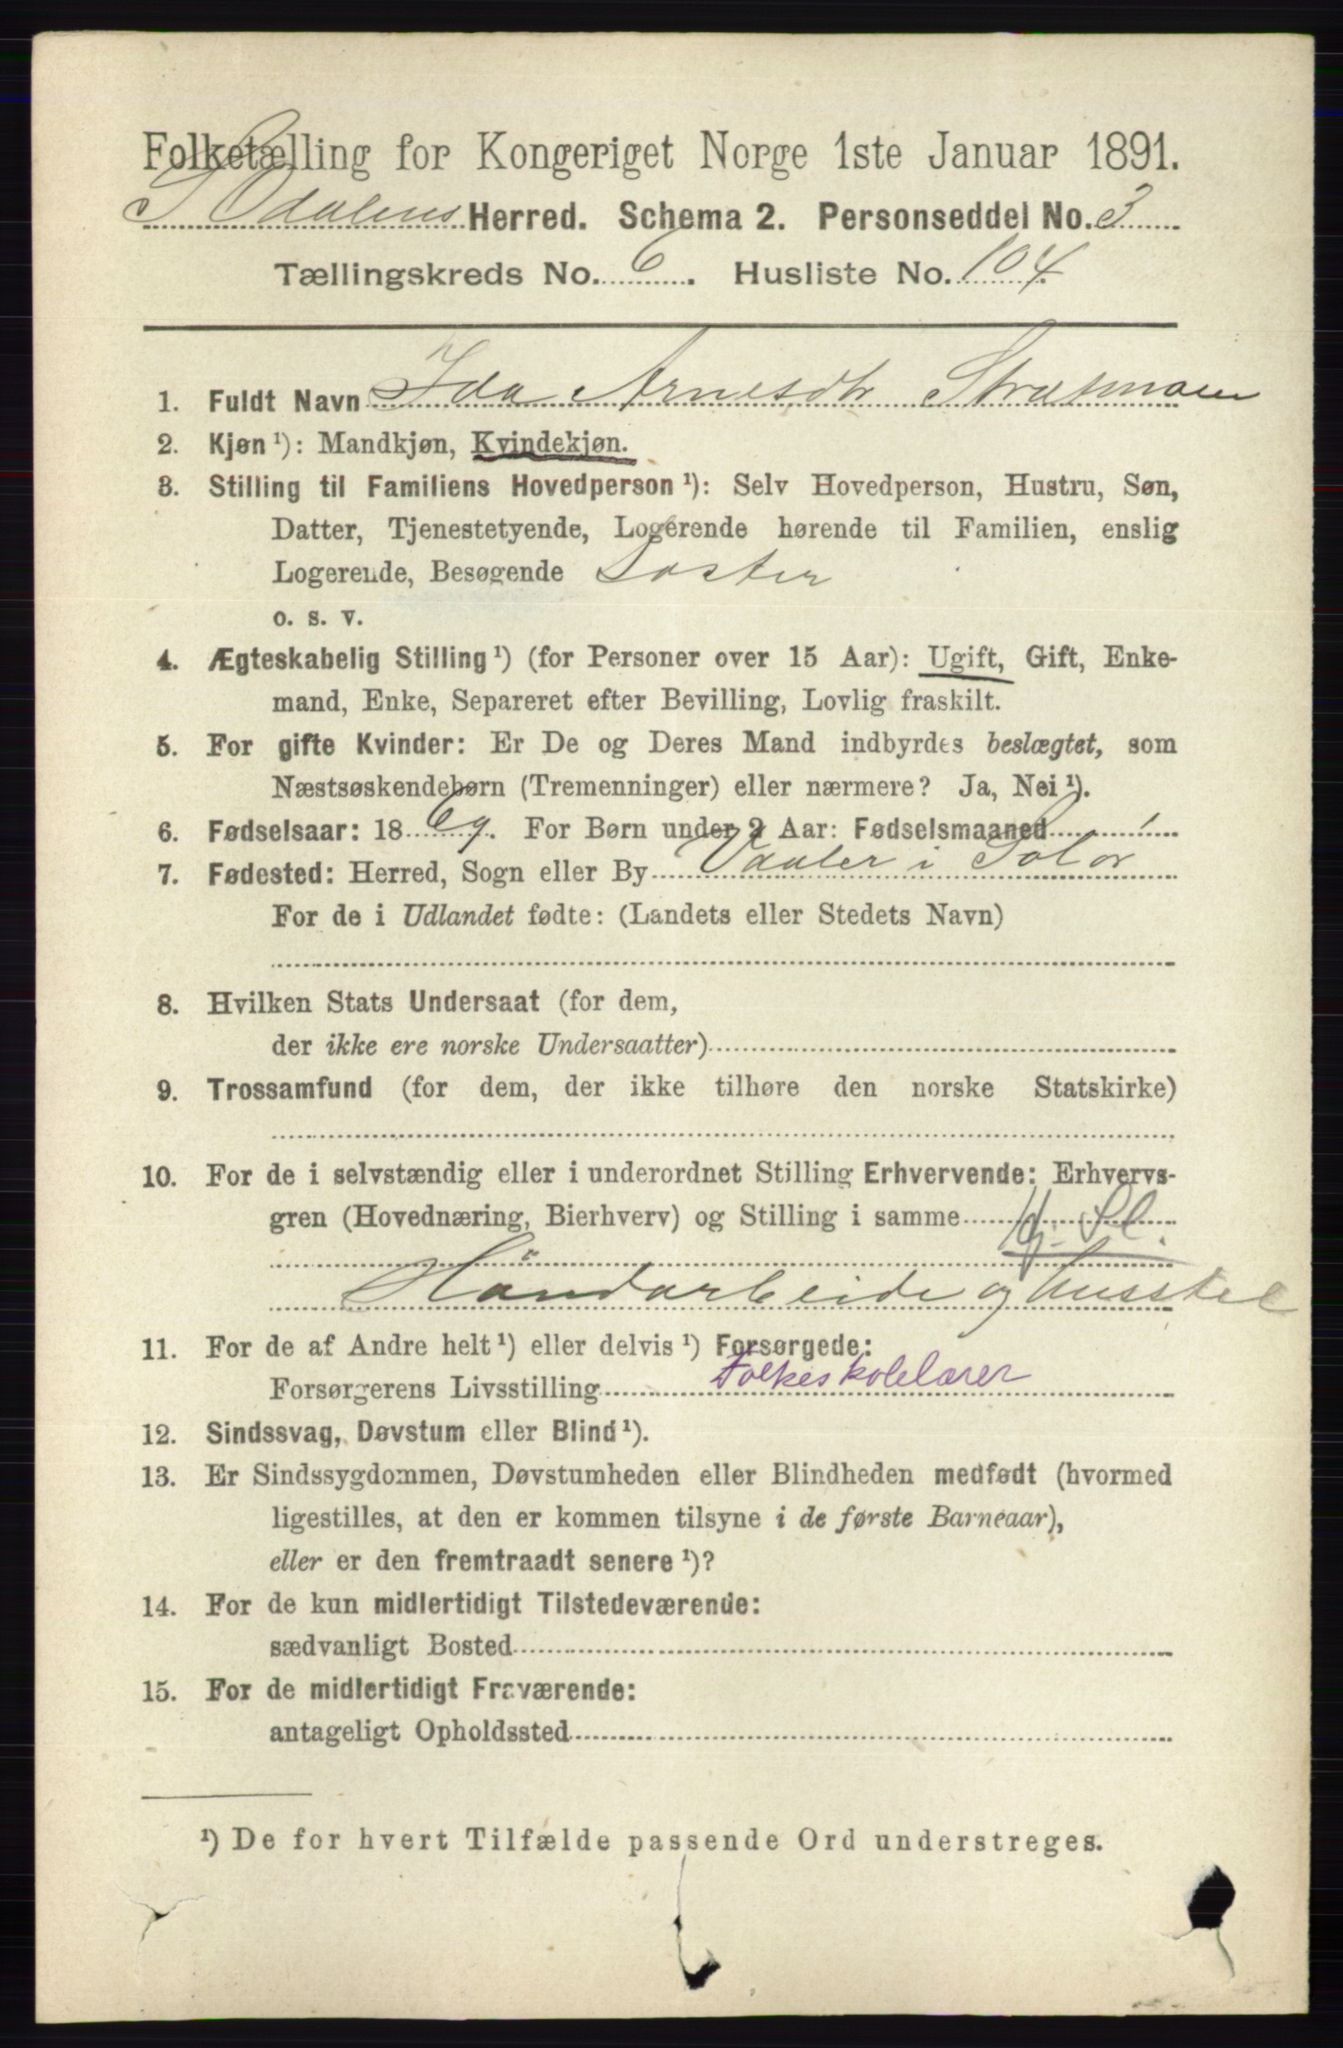 Folketælling for Kongeriget Norge 1ste Januar 1891.
S Odalens Herred. Schema 2. Personseddel No. 3
Tællingskreds No. 6. Husliste No. 104.
1. Fuldt Navn Ida Arnesdtr
2. Kjøn ¹): Mandkjøn, Kvindekjøn.
3. Stilling til Familiens Hovedperson ¹): Selv Hovedperson, Hustru, Søn,
Datter, Tjenestetyende, Logerende hørende til Familien, enslig
Logerende, Besøgende Søster
o. s. v.
4. Ægteskabelig Stilling ¹) (for Personer over 15 Aar): Ugift, Gift, Enke-
mand, Enke, Separeret efter Bevilling, Lovlig fraskilt.
5. For gifte Kvinder: Er De og Deres Mand indbyrdes beslægtet, som
Næstsøskendebørn (Tremenninger) eller nærmere? Ja, Nei ¹).
6. Fødselsaar: 1869. For Børn under 2 Aar: Fødselsmaaned
7. Fødested: Herred, Sogn eller By Vaaler i Solør
For de i Udlandet fødte: (Landets eller Stedets Navn)
8. Hvilken Stats Undersaat (for dem,
der ikke ere norske Undersaatter)
9. Trossamfund (for dem, der ikke tilhøre den norske Statskirke)
10. For de i selvstændig eller i underordnet Stilling Erhvervende: Erhvervs-
gren (Hovednæring, Bierhverv) og Stilling i samme
Håndarbeide og husstel
11. For de af Andre helt ¹) eller delvis ¹) Forsørgede:
Forsørgerens Livsstilling Folkeskolelærer
12. Sindssvag, Døvstum eller Blind ¹).
13. Er Sindssygdommen, Døvstumheden eller Blindheden medfødt (hvormed
ligestilles, at den er kommen tilsyne i de første Barneaar),
eller er den fremtraadt senere ¹)?
14. For de kun midlertidigt Tilstedeværende:
sædvanligt Bosted
15. For de midlertidigt Fraværende:
antageligt Opholdssted
¹) De for hvert Tilfælde passende Ord understreges.